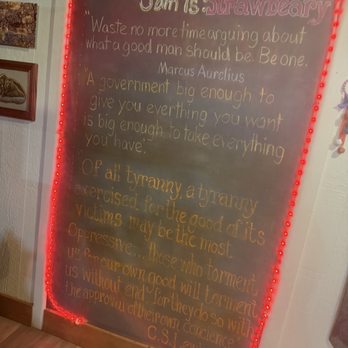 Jam is: Strawbeary
"Waste no more time arguing about
what a good man should be. Be one.
Marcus Aurelius
"A government big enough to
give you everthing you want
is big enough to take everything
you have."
Of all tyranny, a tyranny
exercised for the good of its
victims may be the most
oppressive... those who torment
us for our own good will torment
us without end for they do so with
the approval of their own concience."
C.S.